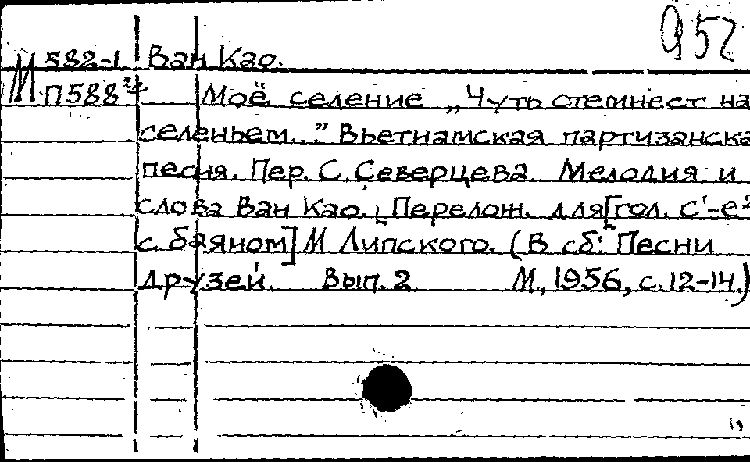 952
М 582-1 Ван Као.
П588 Моё селение „Чуть стемнеет на
селеньем..." Вьетнамская партизанска
песня. Пер. С. Северцева. Мелодия и
слова Ван Као. Перелож. для [гол. с¹-е²
с баяном] М Липского. (В сб: Песни
друзей. Вып. 2 М., 1956, с. 12-14.)